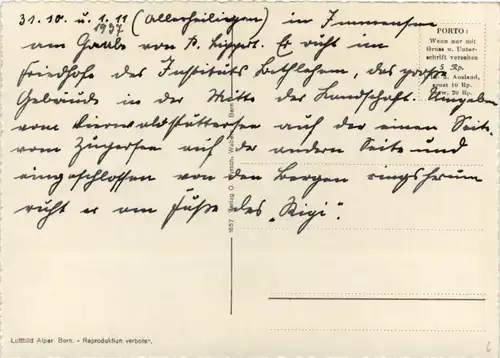 31.10. u. 1.11 (Allerheiligen) in Immensee
1937
am Grabe von P. Lippert. Er ruht im
Friedhofe des Instituts Bethlehem, das große
Gebäude in der Mitte der Landschaft. Umgeben
vom Vierwaldstättersee auf der einen Seite
vom Zugersee auf der andern Seite und
eingeschlossen von den Bergen ringsherum
ruht er am Fuße des „Rigi".
PORTO:
Wenn nur mit
Gruss u. Unter-
schrift versehen
5 Rp.
n. Ausland,
sonst 10 Rp.
bzw. 20 Rp.
1657 Verlag O. Wyrsch, Wabern - Bern
Luftbild Alpar Bern. - Reproduktion verboten.